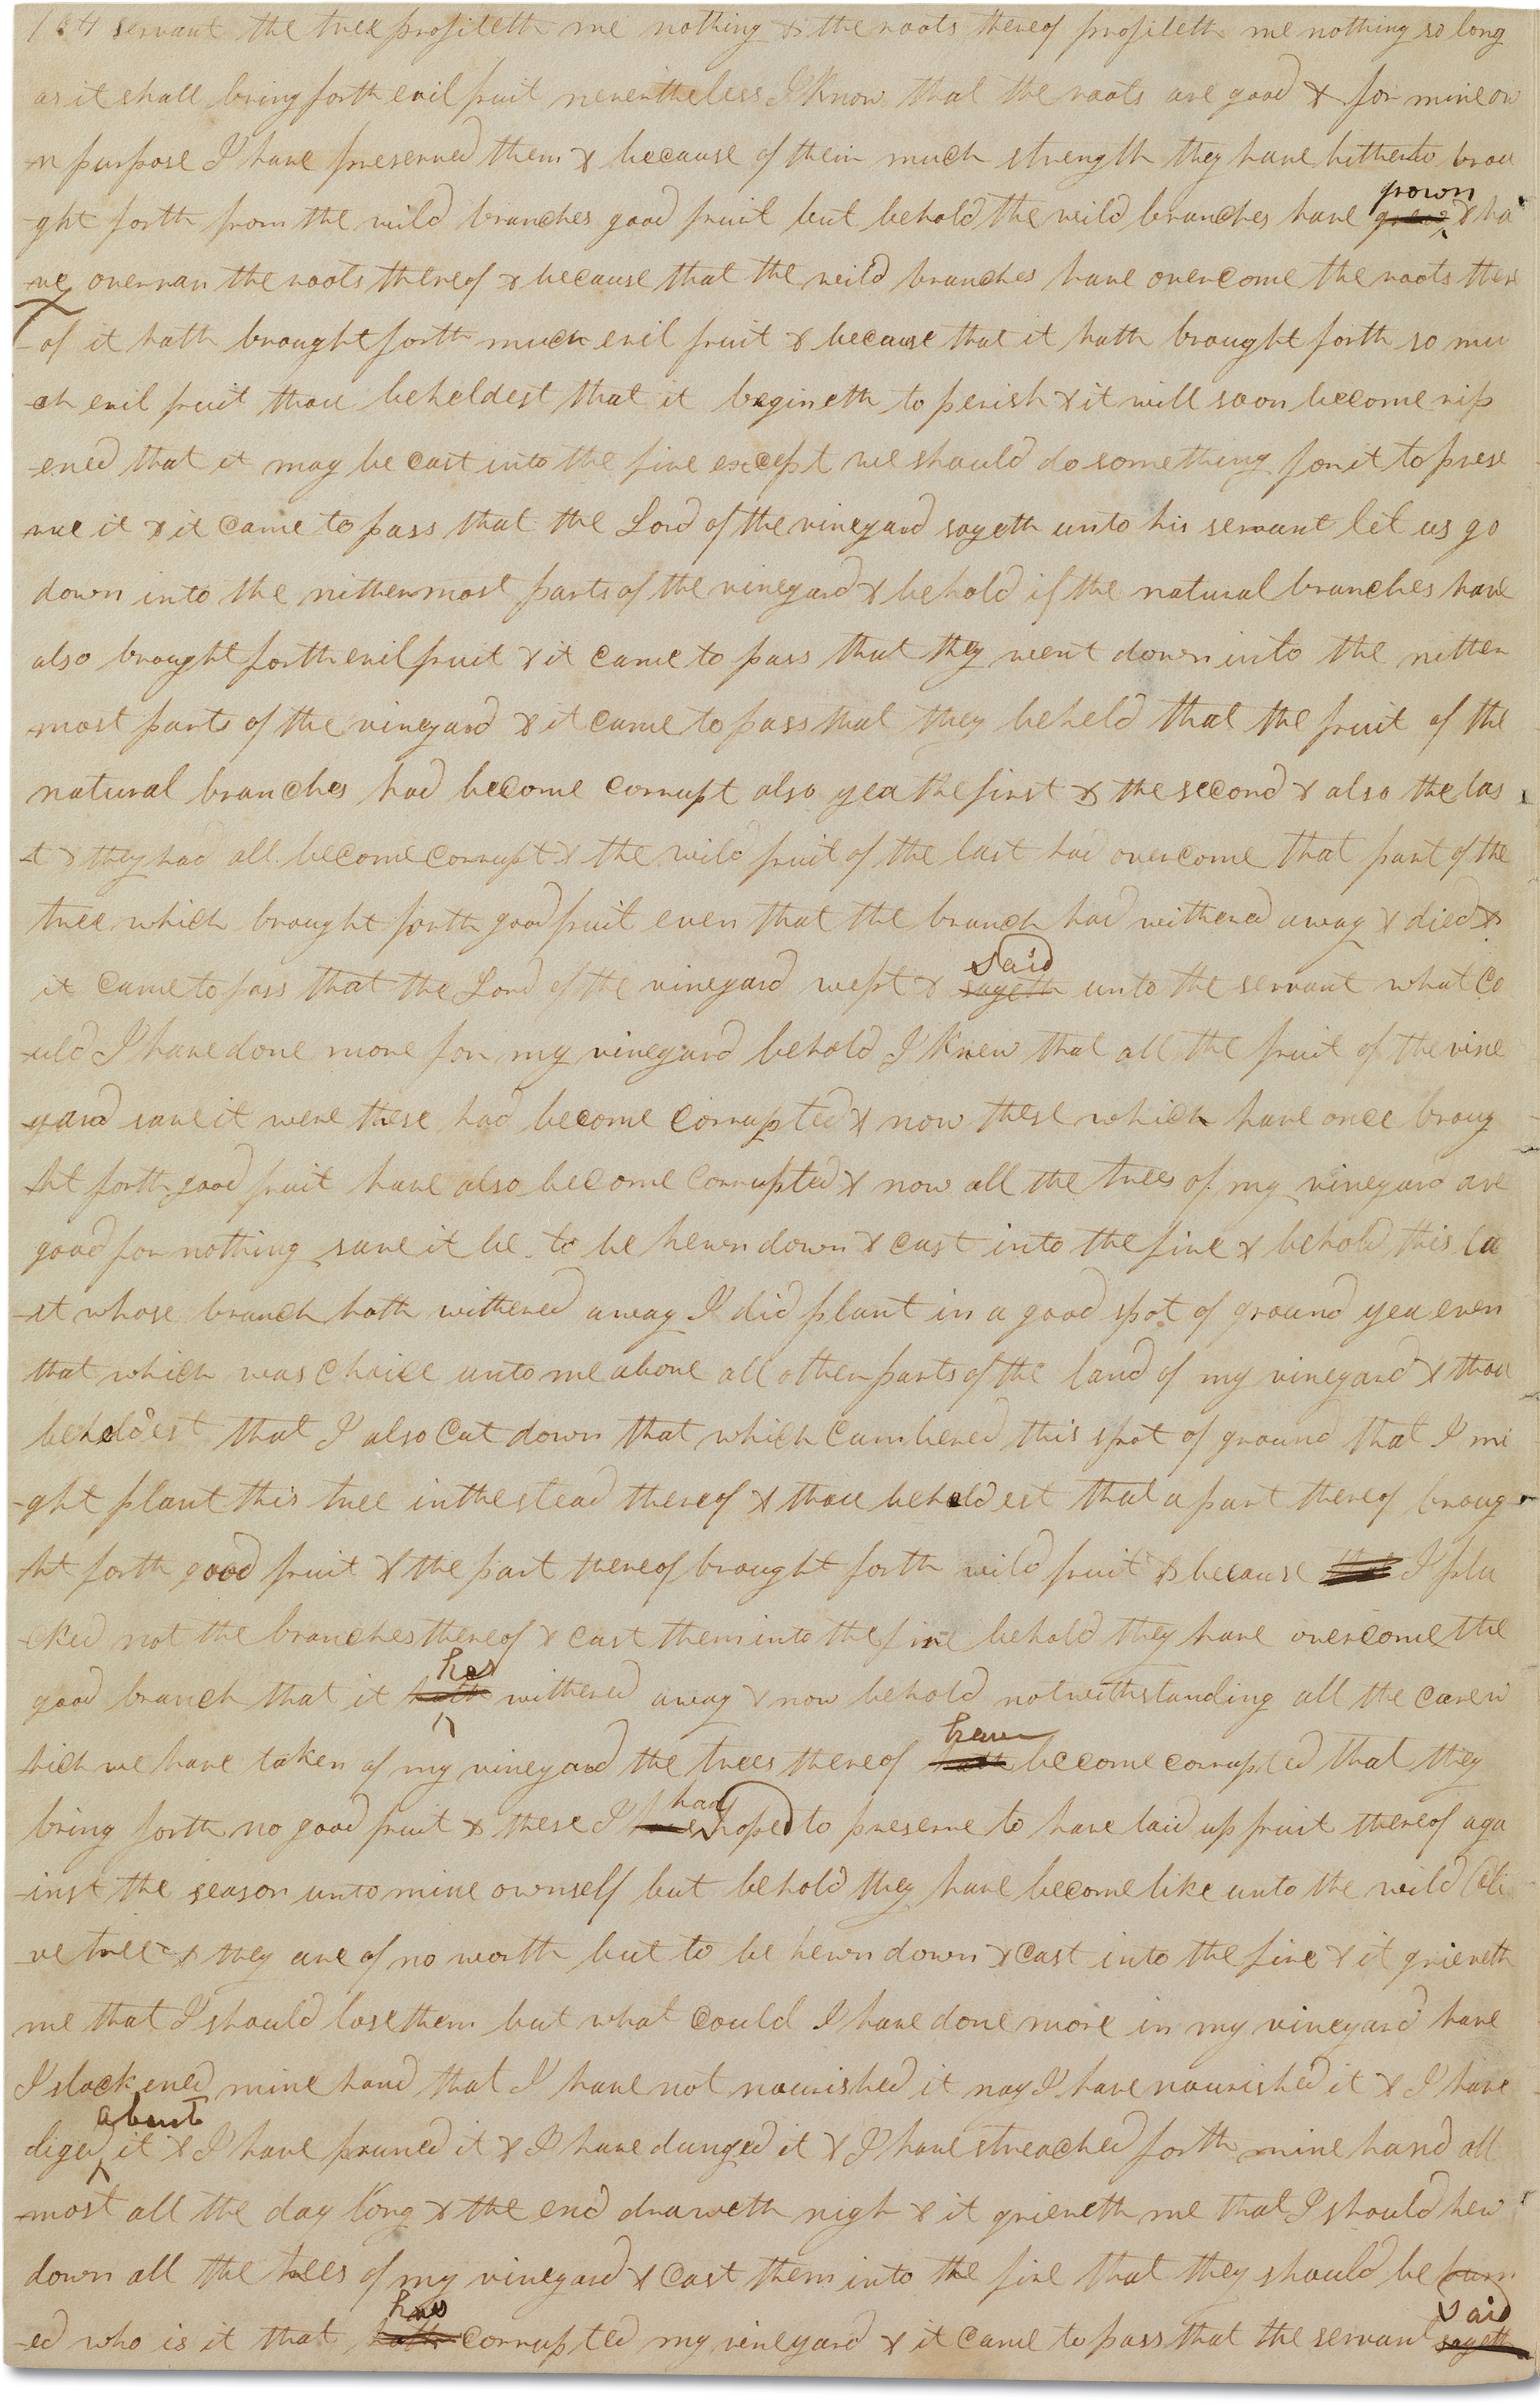 104 servant the tree profiteth me nothing & the roots thereof profiteth me nothing so long
as it shall bring forth evil fruit nevertheless I know that the roots are good & for mine ow
-n purpose I have preserved them & because of their much strength they have hitherto brou
grown
-ght forth from the wild branches good fruit but behold the wild branches have & ha
-ve overran the roots thereof & because that the wild branches have overcome the roots there
-of it hath brought forth much evil fruit & because that it hath brought forth so mu
-ch evil fruit thou beheldest that it begineth to perish & it will soon become rip
-ened that it may be cast into the fire except we should do something for it to prese
rve it & it came to pass that the Lord of the vineyard sayeth unto his servant let us go
down into the nithermost parts of the vineyard & behold if the natural branches have
also brought forth evil fruit & it came to pass that they went down into the nither
most parts of the vineyard & it came to pass that they beheld that the fruit of the
natural branches had become corrupt also yea the first & the second & also the las
-t & they had all become corrupt & the wild fruit of the last had overcome that part of the
tree which brought forth good fruit even that the branch had withered away & died &
said
it came to pass that the Lord of the vineyard wept & sayeth unto the servant what co
-uld I have done more for my vineyard behold I knew that all the fruit of the vine
-yard save it were these had become corrupted & now these which have once broug
-ht forth good fruit have also become corrupted & now all the trees of my vineyard are
good for nothing save it be to be hewn down & cast into the fire & behold this la
-st whose branch hath withered away I did plant in a good spot of ground yea even
that which was choice unto me above all other parts of the land of my vineyard & thou
beheldest that I also cut down that which cumbered this spot of ground that I mi
-ght plant this tree in the stead thereof & thou beheldest that a part thereof broug
-ht forth good fruit & the part thereof brought forth wild fruit & because I plu
-cked not the branches thereof & cast them into the fire behold they have overcome the
has
good branch that it hath withered away & now behold notwithstanding all the care w
have
hich we have taken of my vineyard the trees thereof hath become corrupted that they
had
bring forth no good fruit & these I have hoped to preserve to have laid up fruit thereof aga
-inst the season unto mine ownself but behold they have become like unto the wild oli
-ve tree & they are of no worth but to be hewn down & cast into the fire & it grieveth
me that I should lose them but what could I have done more in my vineyard have
I slackened mine hand that I have not nourished it nay I have nourished it & I have
about
diged it & I have pruned it & I have dunged it & I have streached forth mine hand all
-most all the day long & the end draweth nigh & it grieveth me that I should hew
down all the trees of my vineyard & cast them into the fire that they should be burn
has said
-ed who is it that hath corrupted my vineyard & it came to pass that the servant sayeth